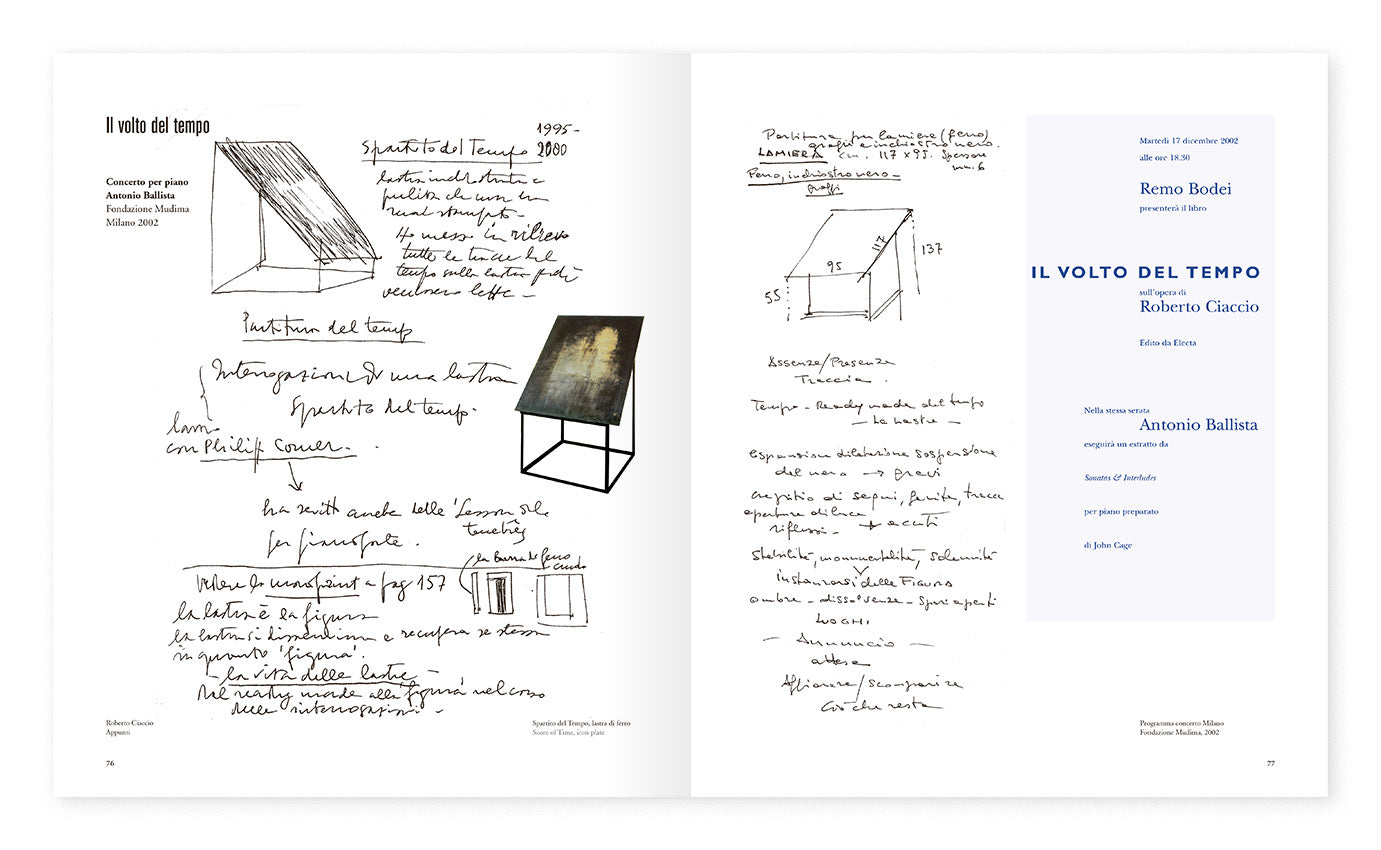 Il volto del tempo
Concerto per piano
Antonio Ballista
Fondazione Mudima
Milano 2002
1995-
Spartito del Tempo 2000
lastra industriale
pulita che non ha
mai stampato -
Ho messo in rilievo
tutte le tracce del
tempo sulla lastra
Partitura del tempo
Interrogazioni di una lastra
Spartito del tempo.
con Philip Corner.
ha scritto anche delle 'Lesson
per pianoforte.
la barra di ferro
Vedere la monoprint a pag 157
la lastra è la figura
la lastra si e recupera se stessa
in quanto 'figura'.
- la vita delle lastre -
Dal ready made alla 'figura' nel corso
delle interrogazioni. -
Roberto Ciaccio
Appunti
Spartito del Tempo, lastra di ferro
Score of Time, icon plate
76
Partitura per lamiere (ferro)
graffi e inchiostro nero.
LAMIERA cm. 117 x 95. Spessore
mm. 6
Ferro, inchiostro nero -
graffi
117
137
95
55
Assenze/Presenze
Traccia.
Tempo - Ready made del tempo
- Le lastre -
espansione dilatazione sospensione
del nero → gravi
di segni, ferite, tracce
aperture di luce
riflessi. → acuti
Stabilità, monumentalità, solennità
instanziarsi delle Figure
ombre - - Spazi aperti
LUOGHI
- Annuncio -
attesa
Affiorare/Scomparire
Ciò che resta
Martedì 17 dicembre 2002
alle ore 18.30
Remo Bodei
presenterà il libro
IL VOLTO DEL TEMPO
sull'opera di
Roberto Ciaccio
Edito da Electa
Nella stessa serata
Antonio Ballista
eseguirà un estratto da
Sonatas & Interludes
per piano preparato
di John Cage
Programma concerto Milano
Fondazione Mudima, 2002
77